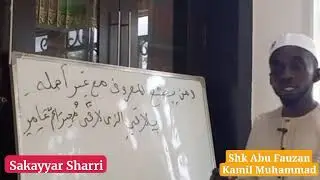 ومن يصنع المعروف مع غير أهله
يلاقي الذى لاقى مجير امّ عامر
Sakayyar Sharri
Shk Abu Fauzan
Kamil Muhammad